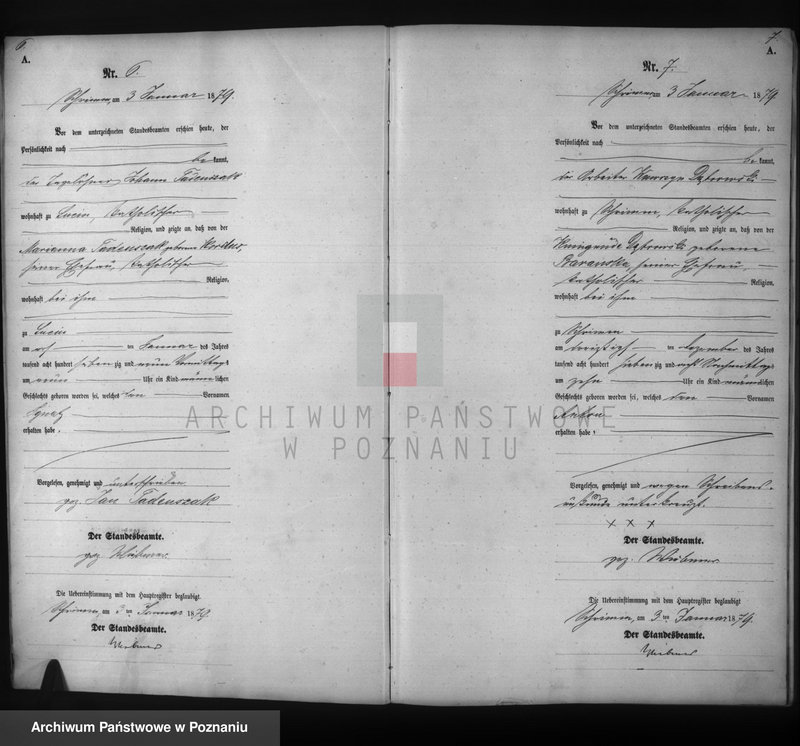 6.
A.
Nr. 6.
Schrimm, am 3 Januar 1879.
Vor dem unterzeichneten Standesbeamten erschien heute, der
Persönlichkeit nach
bekannt,
der Johann Tadeuszak
wohnhaft zu Lucin, katholischer
Religion, und zeigte an, daß von der
Marianna Tadeuszak, geborene
seiner Ehefrau, katholischer
Religion,
wohnhaft bei ihm
zu Lucin
am Januar des Jahres
tausend acht hundert siebenzig und neun Vormittags
um neun Uhr ein Kind männlichen
Geschlechts geboren worden sei, welches den Vornamen
Ignatz
erhalten habe.
Vorgelesen, genehmigt und unterschrieben
gez. Jan Tadeuszak
Der Standesbeamte.
gez.
Die Uebereinstimmung mit dem Hauptregister beglaubigt
Schrimm, am 3 ten Januar 1879.
Der Standesbeamte.
7.
A.
Nr. 7.
Schrimm, am 3 Januar 1879
Vor dem unterzeichneten Standesbeamten erschien heute, der
Persönlichkeit nach
bekannt,
der Arbeiter Dąbrowski
wohnhaft zu Schrimm, katholischer
Religion, und zeigte an, daß von der
Dąbrowska geborene
Baranska, seiner Ehefrau,
katholischer Religion,
wohnhaft bei ihm
zu Schrimm
am dreizigst ten Dezember des Jahres
tausend acht hundert siebenzig und acht Nachmittags
um zehn Uhr ein Kind männlichen
Geschlechts geboren worden sei, welches den Vornamen
Anton
erhalten habe.
Vorgelesen, genehmigt und wegen Schreibens-
unkunde unterkreuzt.
x x x
Der Standesbeamte.
gez.
Die Uebereinstimmung mit dem Hauptregister beglaubigt
Schrimm, am 3 ten Januar 1879.
Der Standesbeamte.
ARCHIWUM PAŃSTWOWE
W POZNANIU
Archiwum Państwowe w Poznaniu